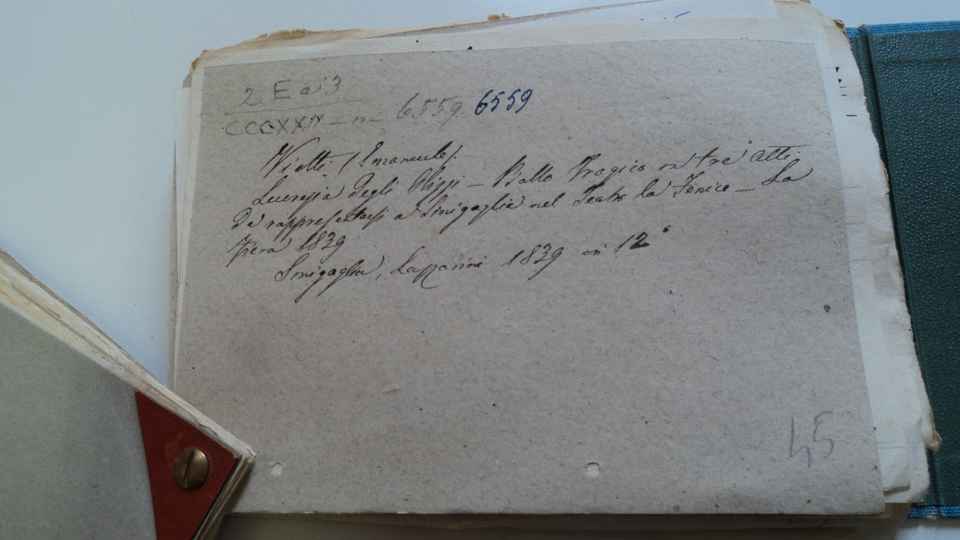 2 E a 3
CCCXXIX - n - 6559. 6559
Viotti (Emanuele).
Lucrezia Degli Obizzi - Ballo Tragico in tre atti
Da rappresentarsi a Sinigaglia nel Teatro la Fenice - La
Fiera 1839
Sinigaglia, Lazzarini 1839 in 12°
45